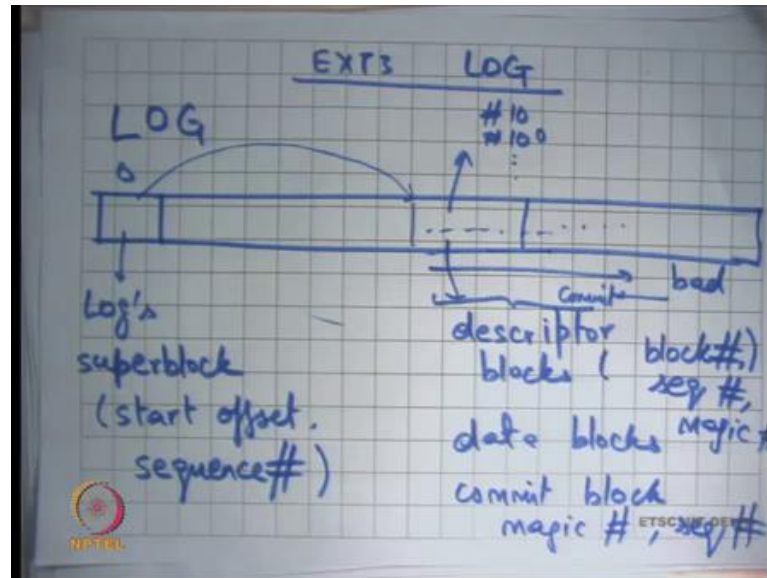 EXT3 LOG
LOG
#10
#100
0
Commit
bad
Log's
superblock
(start offset.
sequence#)
descriptor
blocks ( block#,)
seq #,
Magic #
data blocks
commit block
magic #, seq #
NPTEL